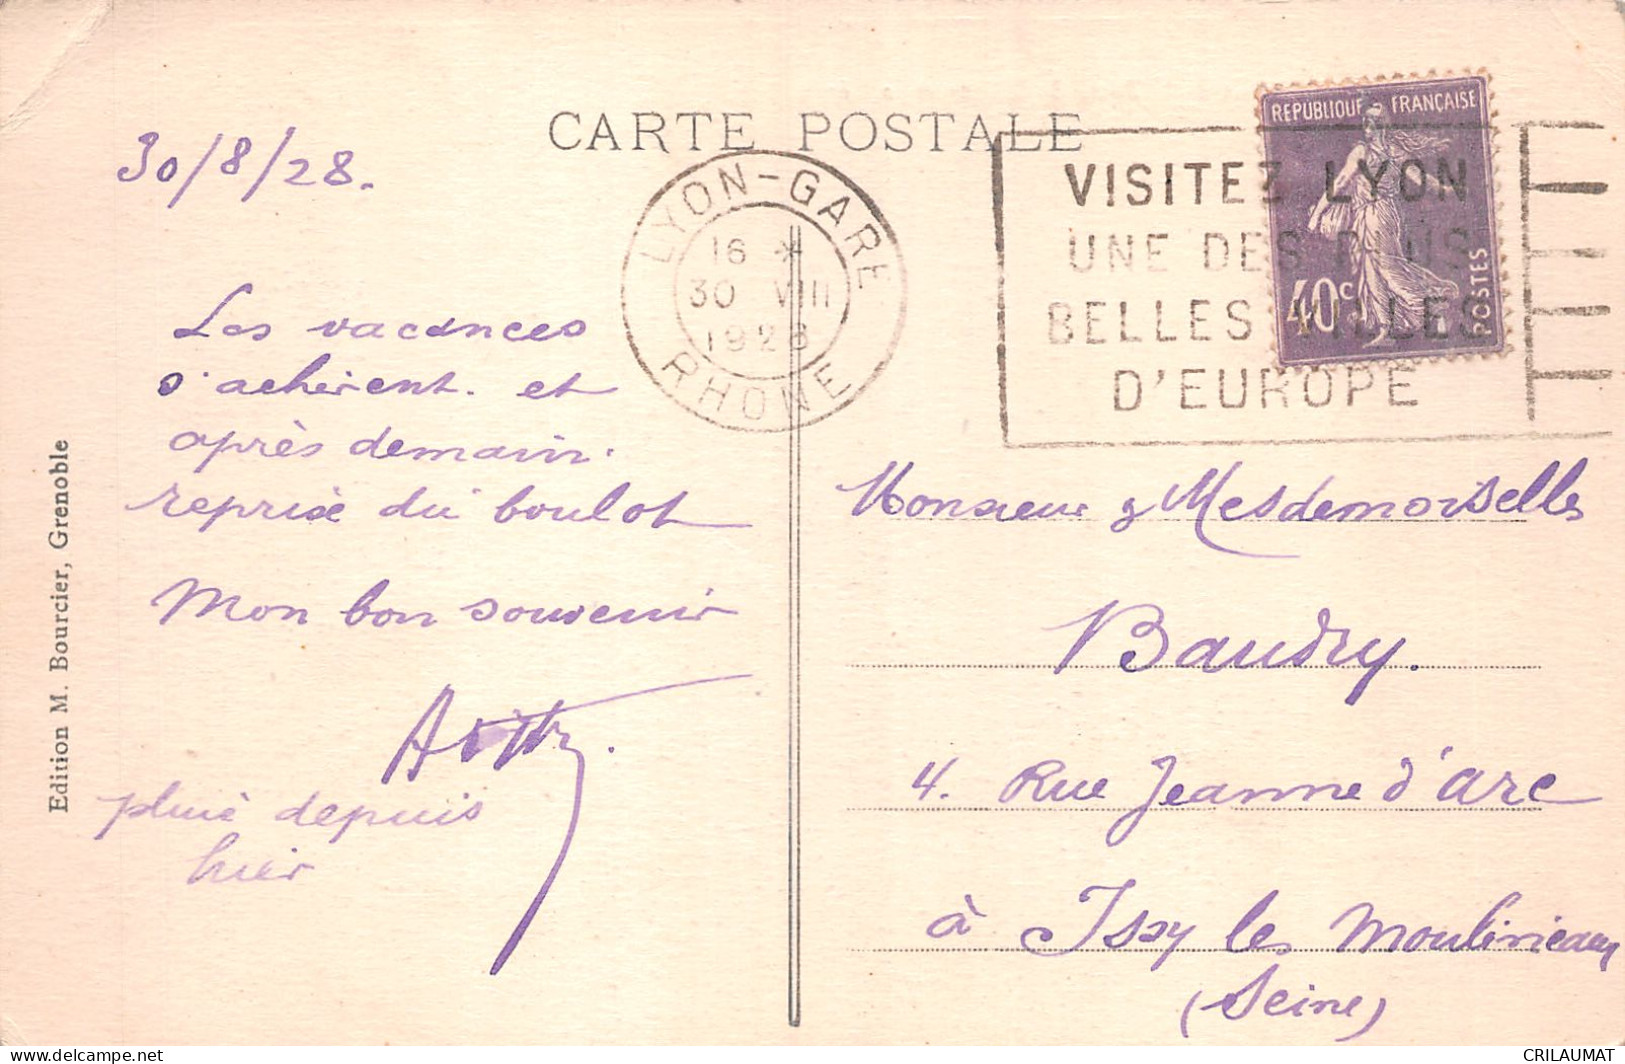 CARTE POSTALE
30/8/28.
LYON-GARE
16 *
30 VIII
1928
RHONE
VISITEZ LYON
UNE DES PLUS
BELLES VILLES
D'EUROPE
REPUBLIQUE FRANÇAISE
40c
POSTES
Les vacances
s'achèvent. et
après demain.
reprise du boulot
Mon bon souvenir
pluie depuis
hier
Edition M. Bourcier, Grenoble
Monsieur & Mesdemoiselles
Baudry.
4. Rue Jeanne d'Arc
à Issy les Moulineaux
(Seine)
delcampe.net
CRILAUMAT